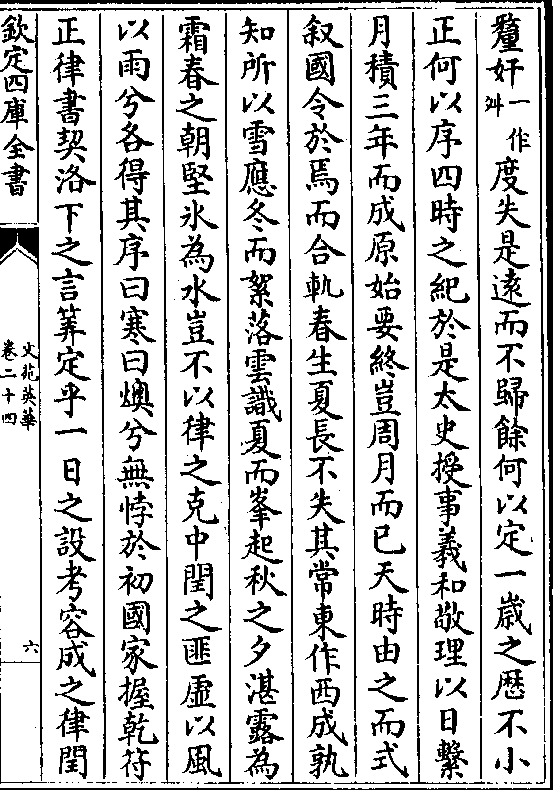 釐奸一作舛度失是遠而不歸餘何以定一歲之厯不小
正何以序四時之紀於是太史授事義和敬理以日繫
月積三年而成原始要終豈周月而已天時由之而式
叙國令於焉而合軌春生夏長不失其常東作西成孰
知所以雪應冬而絮落雲識夏而峯起秋之夕湛露為
霜春之朝堅氷為水豈不以律之克中閏之匪虛以風
以雨兮各得其序曰寒曰燠兮無悖於初國家握乾符
正律書契洛下之言筭定乎一日之設考容成之律閏
欽定四庫全書
文苑英華
卷二十四
六